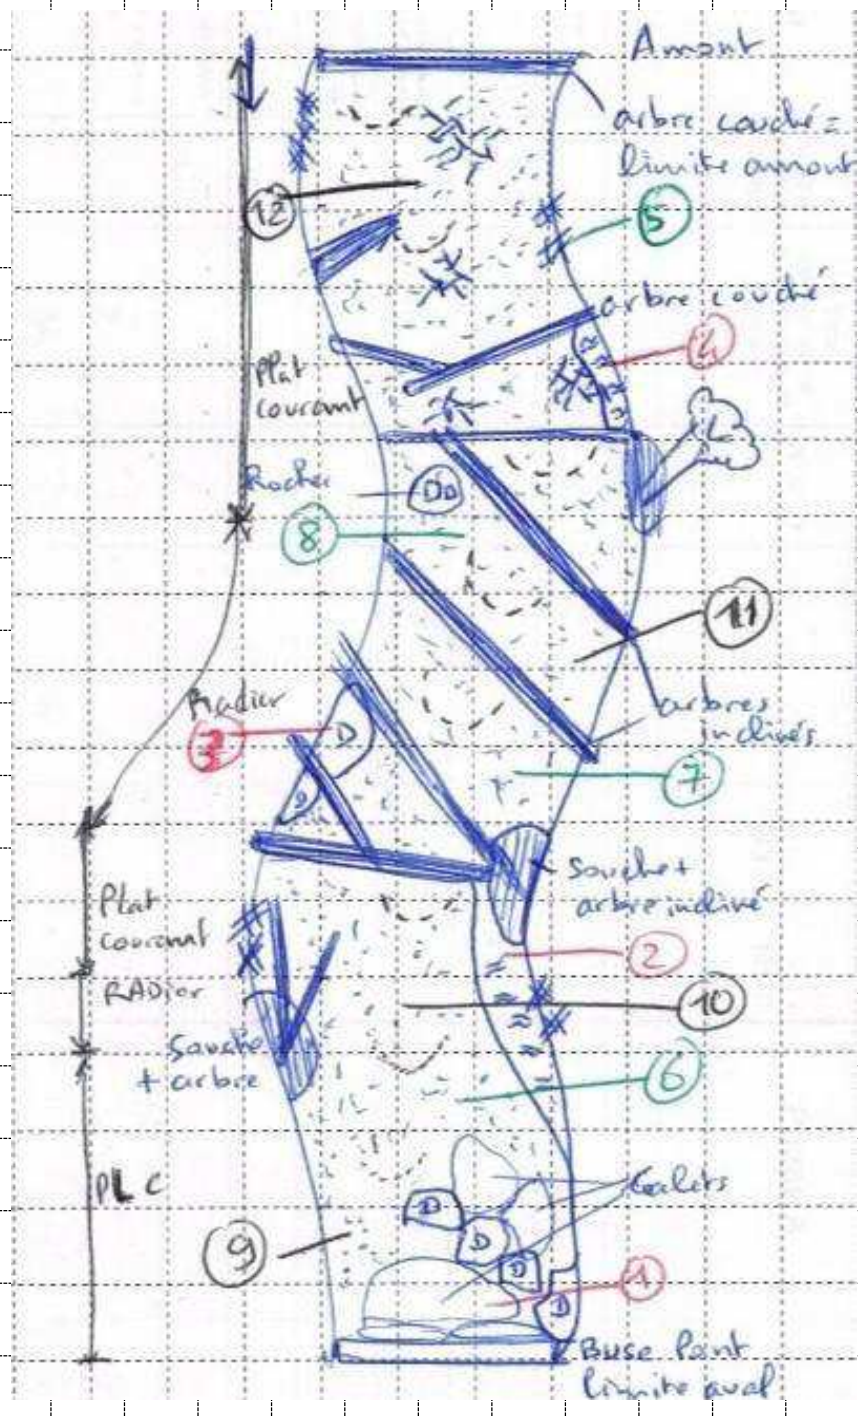 Amont
arbre couché =
limite amont
12
5
arbre couché
4
Plat
courant
Rocher
DD
8
11
Radier
3
D
D
arbres
inclinés
7
Souche +
arbre incliné
Plat
courant
2
RADier
10
Souche
+ arbre
6
PLC
Galets
D
D
D
D
9
1
Buse Pont
limite aval